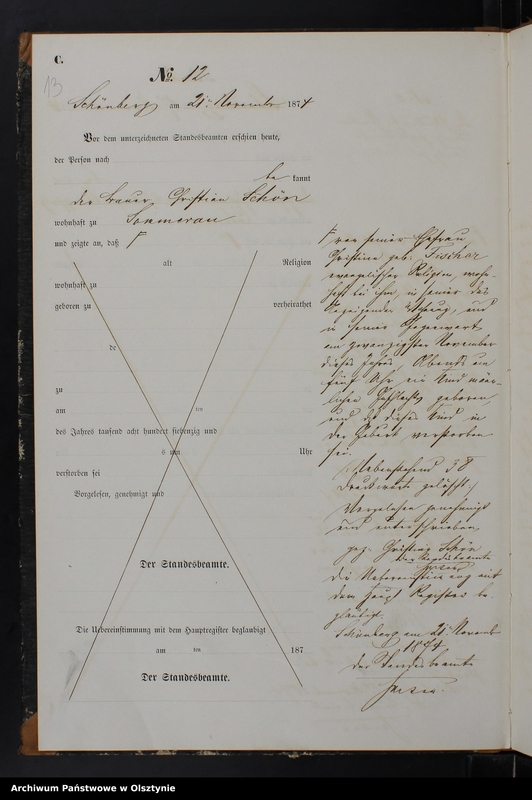 C.
13
No. 12
Schönberg am 21ten November 1874
Vor dem unterzeichneten Standesbeamten erschien heute,
der Person nach
be kannt
der Bauer Christian Schön
wohnhaft zu Sommerau
und zeigte an, daß
alt Religion
wohnhaft zu
geboren zu verheirathet
de
zu
am ten
des Jahres tausend acht hundert siebenzig und
s um Uhr
verstorben sei
Vorgelesen, genehmigt und
Der Standesbeamte.
Die Uebereinstimmung mit dem Hauptregister beglaubigt
am ten 187
Der Standesbeamte.
von seiner Ehefrau
Christine geb: Fischer
evangelischer Religion, wohn-
haft bei ihm, in seiner des
Anzeigenden Behausung, und
in seiner Gegenwart
am zwanzigsten November
dieses Jahres Abends um
fünf Uhr ein Kind männ-
lichen Geschlechts geboren
und daß dieses Kind in
der Geburt verstorben
sei.
Nebenstehend 38
Druckworte gelöscht,
Vorgelesen genehmigt
und unterschrieben
gez. Christian Schön
Der Standesbeamte
Die Uebereinstimmung mit
dem Haupt Register be-
glaubigt.
Schönberg am 21ten November
1874
Der Standesbeamte
Archiwum Państwowe w Olsztynie